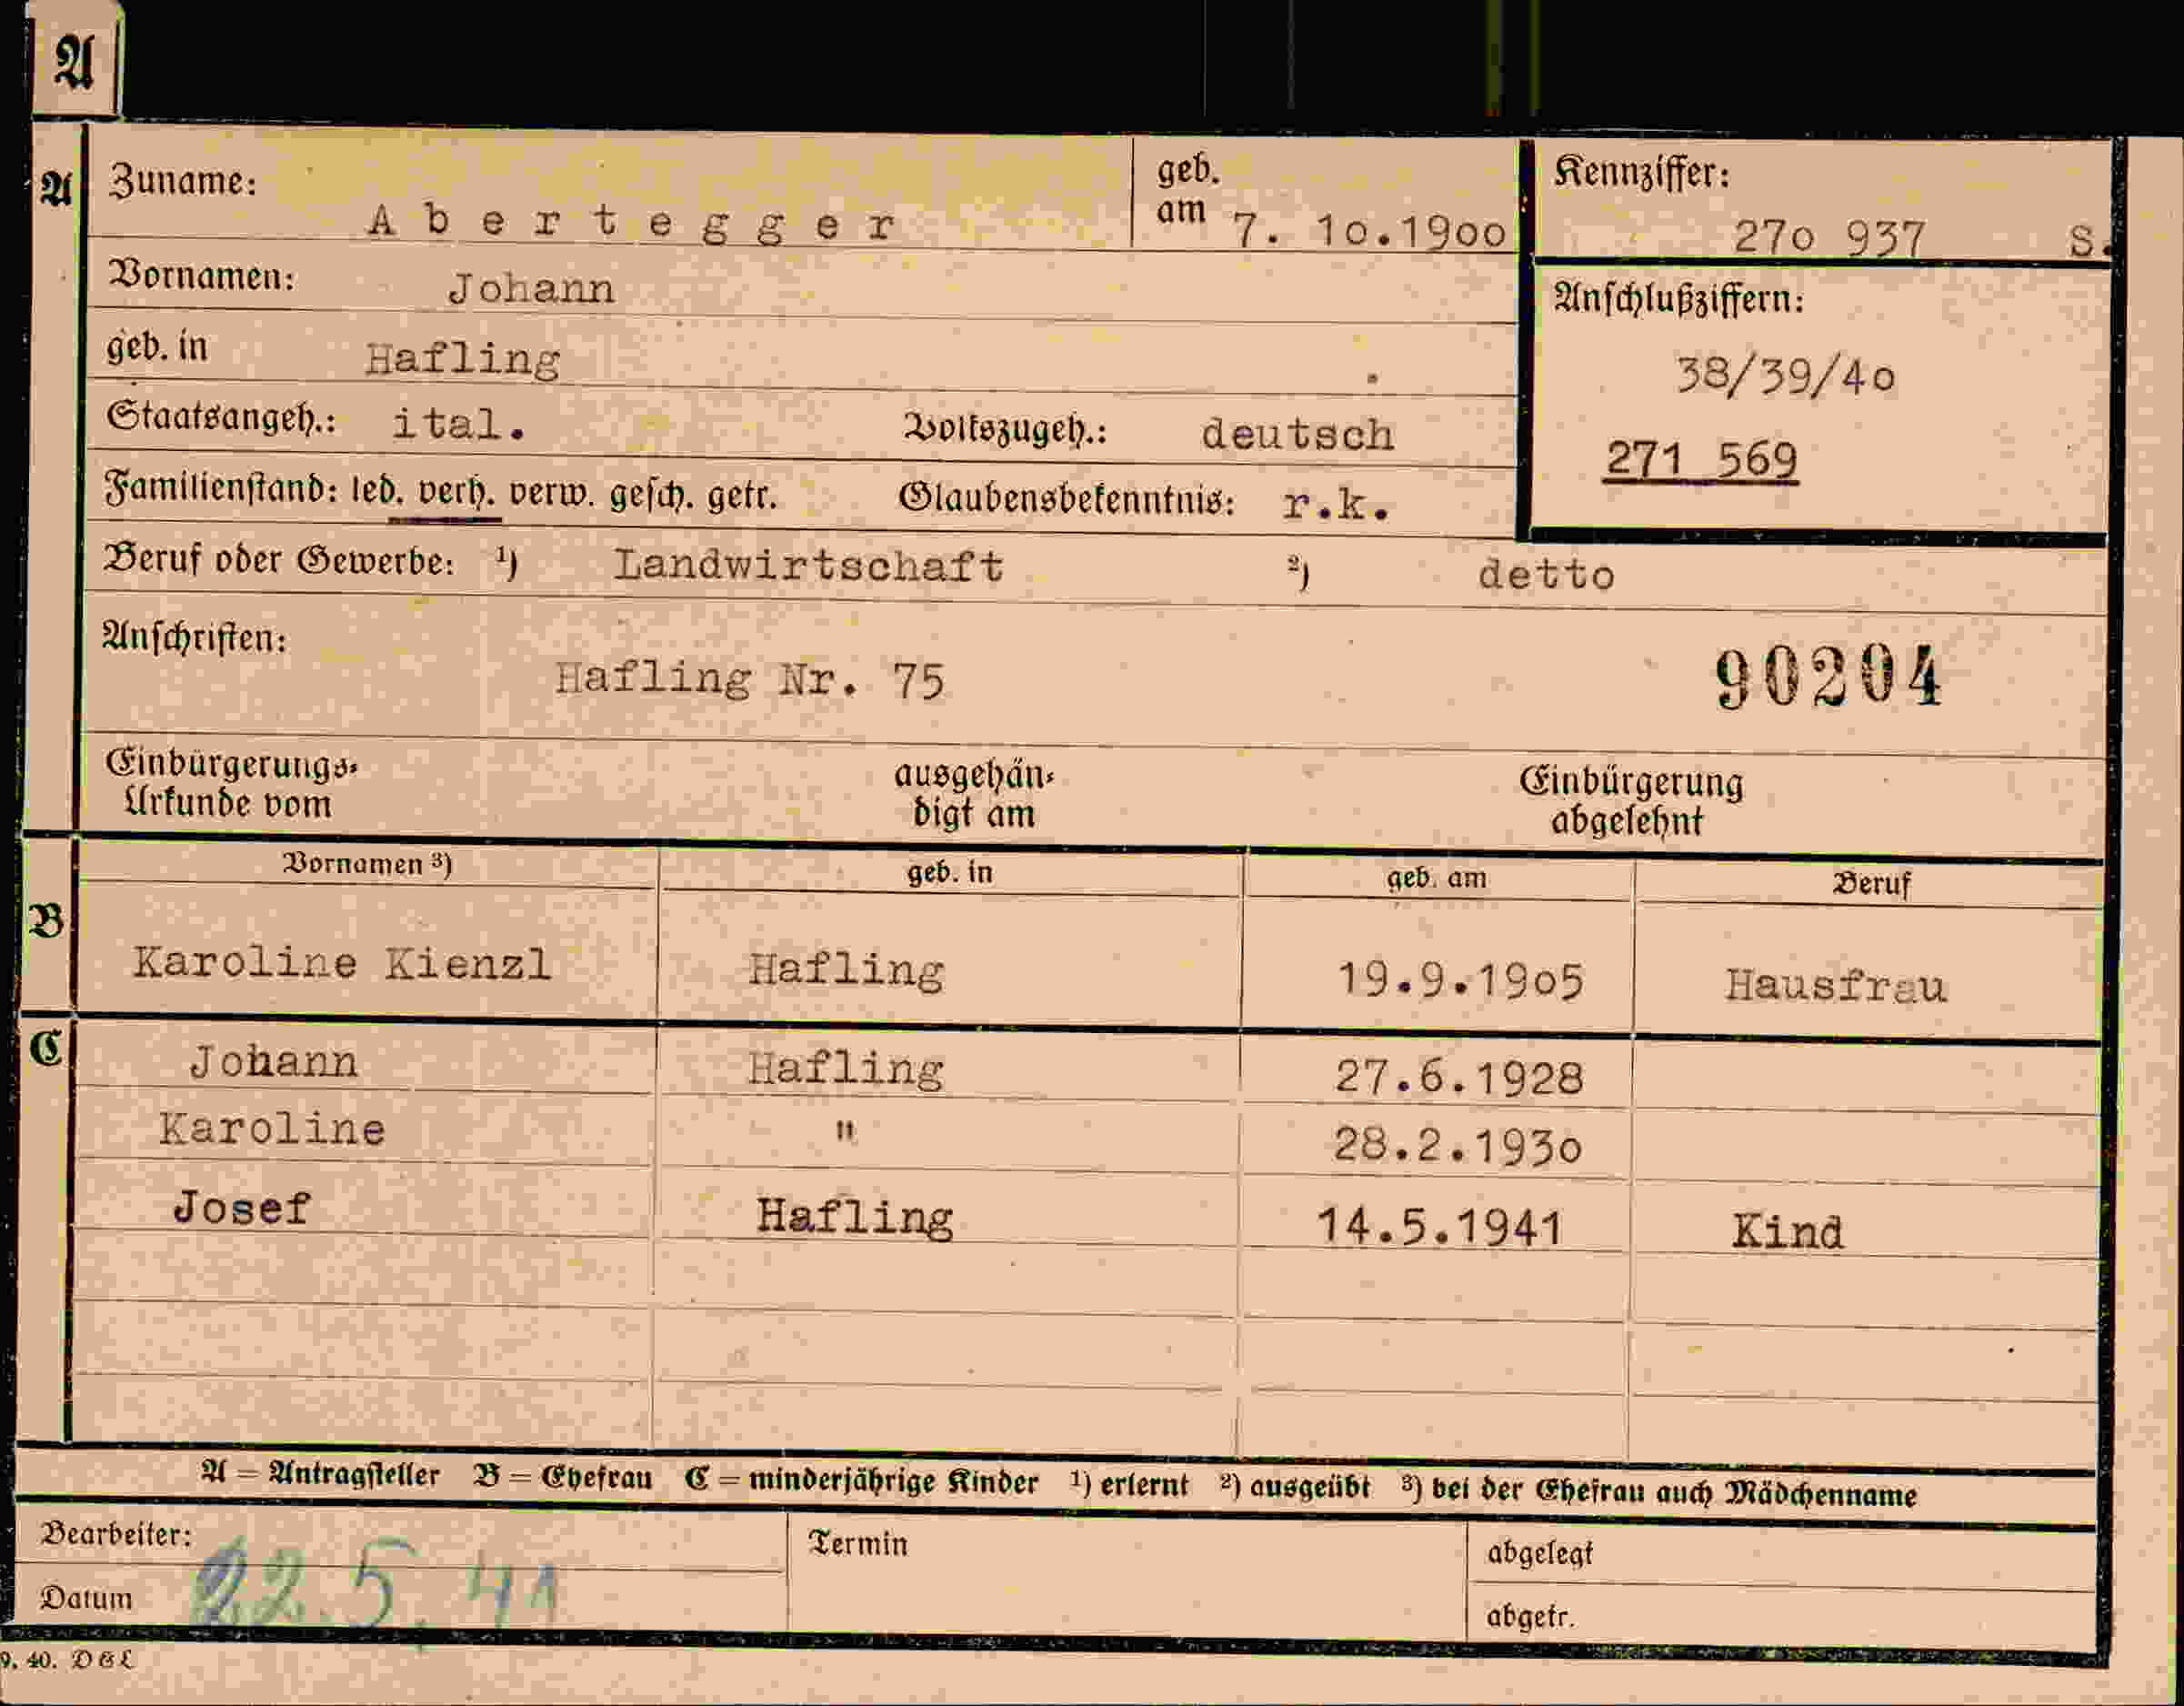 A
A Zuname: Abertegger geb. am 7. 10.1900 Kennziffer: 270 937 S.
Vornamen: Johann
Anschlußziffern:
geb. in Hafling
38/39/40
Staatsangeh.: ital. Volkszugeh.: deutsch
271 569
Familienstand: led. verh. verw. gesch. getr. Glaubensbekenntnis: r.k.
Beruf oder Gewerbe: ¹) Landwirtschaft ²) detto
Anschriften:
Hafling Nr. 75 90204
Einbürgerungs- ausgehän- Einbürgerung
Urkunde vom digt am abgelehnt
Vornamen ³) geb. in geb. am Beruf
B Karoline Kienzl Hafling 19.9.1905 Hausfrau
C Johann Hafling 27.6.1928
Karoline " 28.2.1930
Josef Hafling 14.5.1941 Kind
A = Antragsteller B = Ehefrau C = minderjährige Kinder ¹) erlernt ²) ausgeübt ³) bei der Ehefrau auch Mädchenname
Bearbeiter: Termin abgelegt
Datum 22.5.41 abgetr.
9. 40. DGL